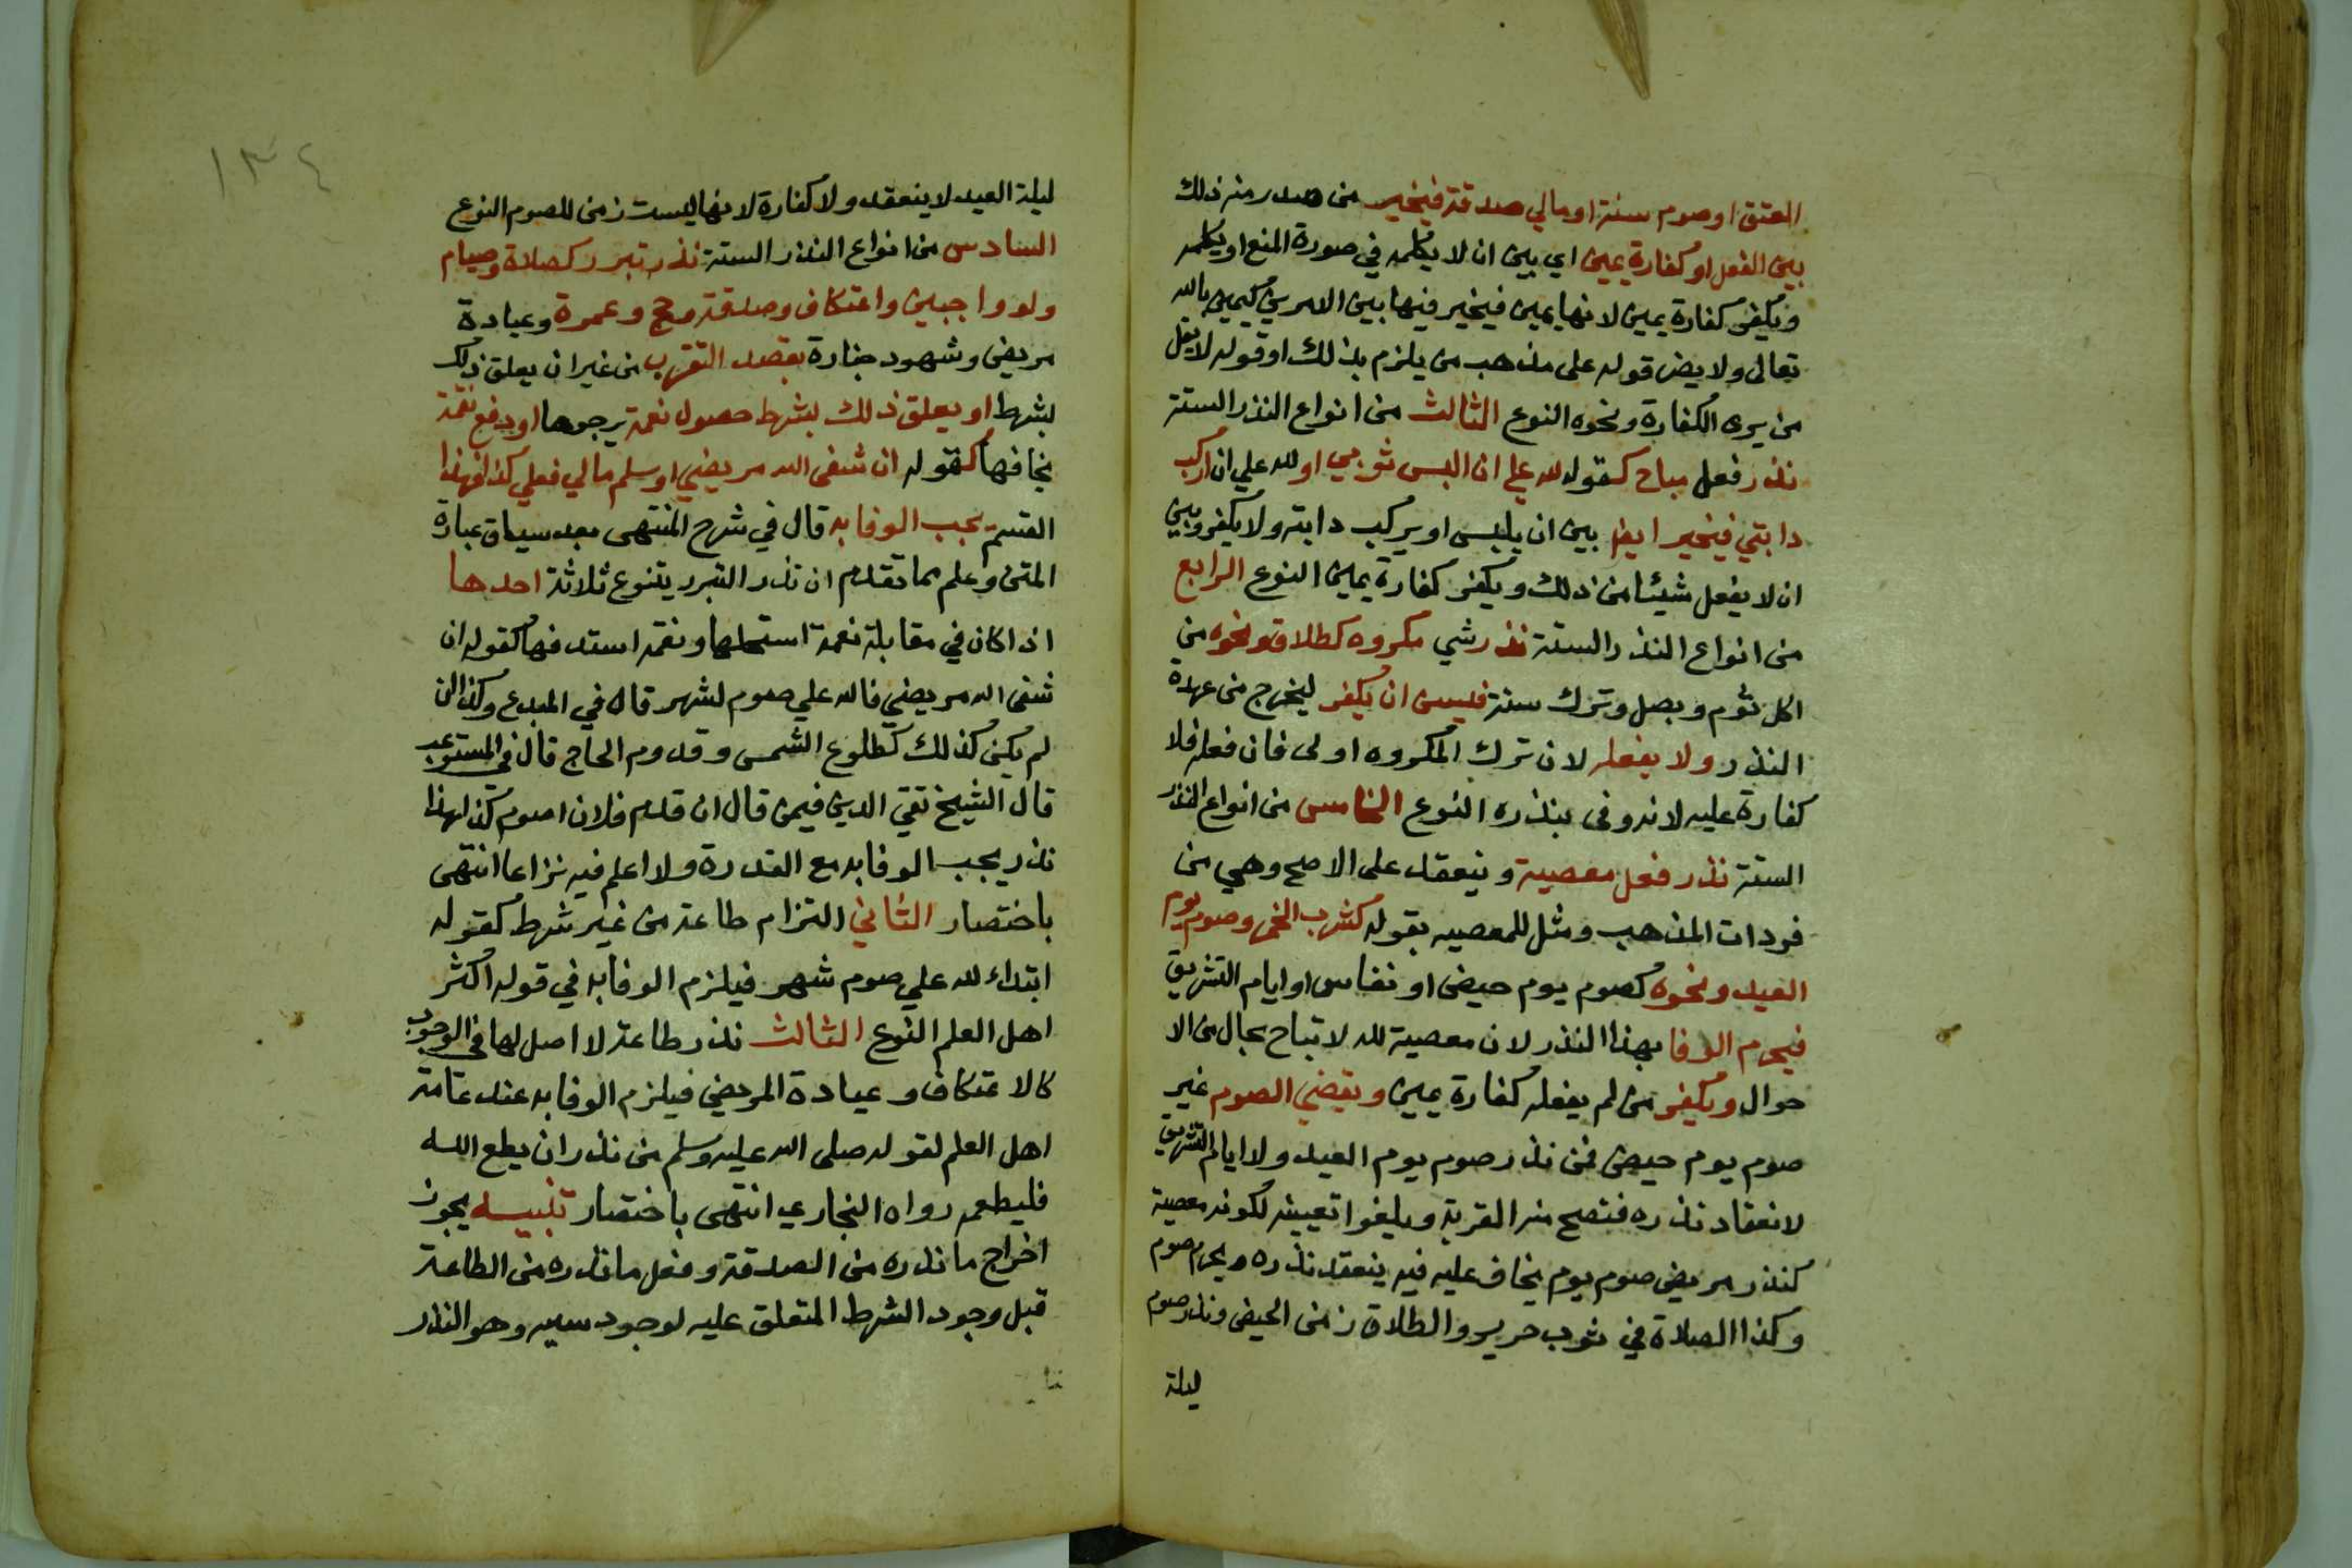 العتق او صوم سنة او مالي صدقة فيخير من صدر منه ذلك
بين الفعل او كفارة يمين اي بين ان لا يكلمه في صورة المنع او يكلمه
ويكفر كفارة يمين لانها يمين فيخير فيها بين الامرين كيمين بالله
تعالى ولا يضر قوله على مذهب من يلزم بذلك او قوله لا يقل
من يرى الكفارة ونحوه النوع الثالث من انواع النذر الستة
نذر فعل مباح كقوله لله علي ان البس ثوبي او لله علي ان اركب
دابتي فيخير ايضا بين ان يلبس او يركب دابته ولا يكفر وبين
ان لا يفعل شيئا من ذلك ويكفر كفارة يمين النوع الرابع
من انواع النذر الستة نذر شي مكروه كطلاق ونحوه من
اكل ثوم وبصل وترك سنة فيسن ان يكفر ليخرج من عهدة
النذر ولا يفعله لان ترك المكروه اولى فان فعله فلا
كفارة عليه لانه وفى بنذره النوع الخامس من انواع النذر
الستة نذر فعل معصية وينعقد على الاصح وهي من
فردات المذهب ومثل للمعصيه بقوله كشرب الخمر وصوم يوم
العيد ونحوه كصوم يوم حيض او نفاس او ايام التشريق
فيحرم الوفا بهذا النذر لان معصية لله لا تباح بحال من الا
حوال ويكفر من لم يفعله كفارة يمين ويقضي الصوم غير
صوم يوم حيض فمن نذر صوم يوم العيد ولا ايام التشريق
لانعقاد نذره فتصح منه القربة ويلغوا تعيينه لكونه معصية
كنذر مريض صوم يوم يخاف عليه فيه ينعقد نذره ويحرم صوم
وكذا الصلاة في ثوب حرير والطلاق زمن الحيض ونذر صوم
ليلة
١٣٤
ليلة العيد لا ينعقد ولا كفارة لانها ليست زمن للصوم النوع
السادس من انواع النذر الستة نذر تبرر كصلاة وصيام
ولو واجبين واعتكاف وصدقة وحج وعمرة وعيادة
مريض وشهود جنازة بقصد التقرب من غير ان يعلق ذلك
بشرط او يعلق ذلك بشرط حصول نعمة يرجوها او دفع نقمة
يخافها كقوله ان شفى الله مريضي او سلم مالي فعلي كذا فهذا
القسم يجب الوفا به قال في شرح المنتهى بعد سياق عبارة
المتن وعلم مما تقدم ان نذر التبرر يتنوع ثلاثة احدها
اذا كان في مقابلة نعمة استجلبها ونقمة استدفعها كقوله ان
شفى الله مريضي فلله علي صوم لشهر قال في المبدع وكذا ان
لم يكن كذلك كطلوع الشمس وقدوم الحاج قال في المستوعب
قال الشيخ تقي الدين فيمن قال ان قدم فلان اصوم كذا هذا
نذر يجب الوفا به مع القدرة ولا اعلم فيه نزاعا انتهى
باختصار الثاني التزام طاعة من غير شرط كقوله
ابتداء لله علي صوم شهر فيلزم الوفا به في قول اكثر
اهل العلم النوع الثالث نذر طاعة لا اصل لها في الوجوب
كالاعتكاف وعيادة المريض فيلزم الوفا به عند عامة
اهل العلم لقوله صلى الله عليه وسلم من نذر ان يطع الله
فليطعه رواه البخاري انتهى باختصار تنبيه يجوز
اخراج ما نذره من الصدقة وفعل ما نذره من الطاعة
قبل وجود الشرط المتعلق عليه لوجود سببه وهو النذر